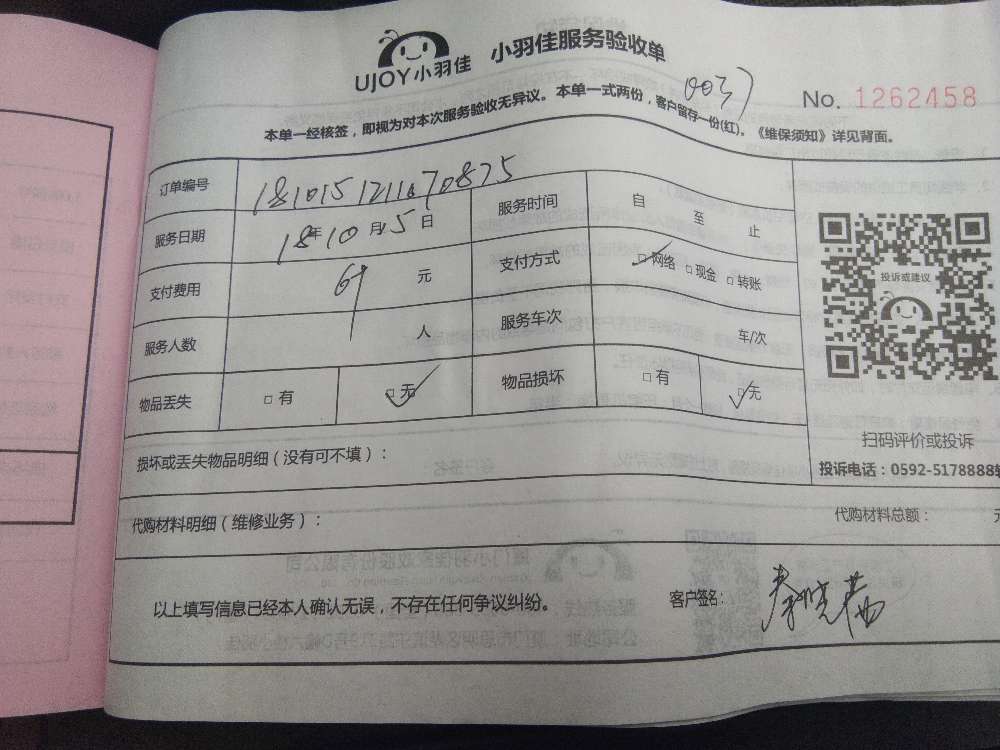 UJOY小羽佳 小羽佳服务验收单
0037
No. 1262458
本单一经核签，即视为对本次服务验收无异议。本单一式两份，客户留存一份(红)。《维保须知》详见背面。
订单编号 181015121167087​5
服务日期 18年10月15日 服务时间 自 至 止
支付费用 69 元 支付方式 □网络 □现金 □转账
服务人数 人 服务车次 车/次
物品丢失 □有 □无 物品损坏 □有 □无
投诉或建议
扫码评价或投诉
投诉电话：0592-5178888转
损坏或丢失物品明细（没有可不填）：
代购材料明细（维修业务）： 代购材料总额：
以上填写信息已经本人确认无误，不存在任何争议纠纷。 客户签名：